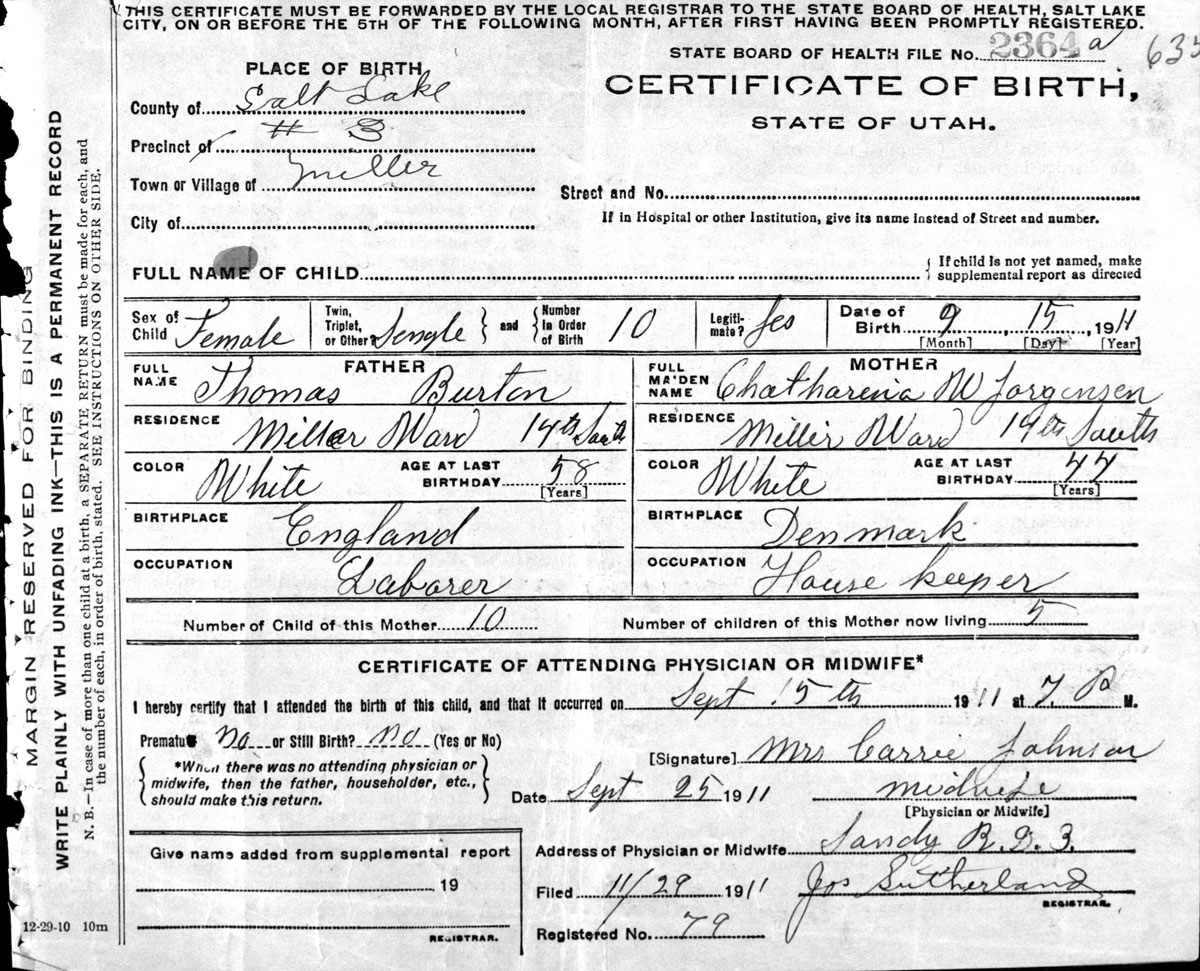 THIS CERTIFICATE MUST BE FORWARDED BY THE LOCAL REGISTRAR TO THE STATE BOARD OF HEALTH, SALT LAKE
CITY, ON OR BEFORE THE 5TH OF THE FOLLOWING MONTH, AFTER FIRST HAVING BEEN PROMPTLY REGISTERED.
STATE BOARD OF HEALTH FILE No. 2364 a 635
PLACE OF BIRTH
CERTIFICATE OF BIRTH,
STATE OF UTAH.
County of Salt Lake
Precinct of # 3
Town or Village of Miller
Street and No.
City of
If in Hospital or other Institution, give its name instead of Street and number.
FULL NAME OF CHILD
{ If child is not yet named, make
supplemental report as directed
Sex of Child Female
Twin, Triplet, or Other? Sengle } and { Number In Order of Birth 10
Legitimate? Yes
Date of Birth 9, 15, 1911
[Month] [Day] [Year]
FATHER
FULL NAME Thomas Burton
RESIDENCE Miller Ward 14th South
COLOR White AGE AT LAST BIRTHDAY 58
[Years]
BIRTHPLACE England
OCCUPATION Laborer
MOTHER
FULL MAIDEN NAME Chatharena M Jorgensen
RESIDENCE Miller Ward 14th South
COLOR White AGE AT LAST BIRTHDAY
[Years]
BIRTHPLACE Denmark
OCCUPATION House keeper
Number of Child of this Mother 10 Number of children of this Mother now living 5
CERTIFICATE OF ATTENDING PHYSICIAN OR MIDWIFE*
I hereby certify that I attended the birth of this child, and that it occurred on Sept 15th 1911 at 7. P M.
Premature No or Still Birth? No (Yes or No)
[Signature] Mrs Carrie Johnson
{ *When there was no attending physician or
midwife, then the father, householder, etc.,
should make this return. }
Date Sept 25 1911 midwife
[Physician or Midwife]
Address of Physician or Midwife Sandy R.D.3.
Filed 11/29 1911 Jos Sutherland
REGISTRAR.
Registered No. 79
Give name added from supplemental report
19
REGISTRAR.
12-29-10 10m
MARGIN RESERVED FOR BINDING
WRITE PLAINLY WITH UNFADING INK—THIS IS A PERMANENT RECORD
N. B.—In case of more than one child at a birth, a SEPARATE RETURN must be made for each, and
the number of each, in order of birth, stated. SEE INSTRUCTIONS ON OTHER SIDE.